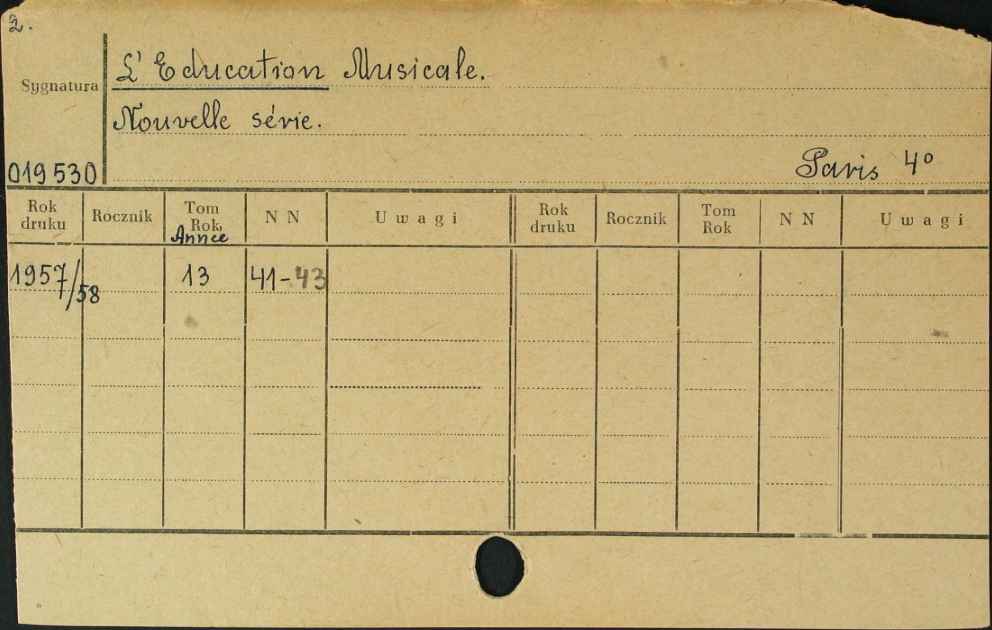 2.
Sygnatura
L' Education Musicale.
Nouvelle série.
019530
Paris 4°
Rok druku Rocznik Tom Rok, Année N N Uwagi Rok druku Rocznik Tom Rok N N Uwagi
1957/58 13 41-43